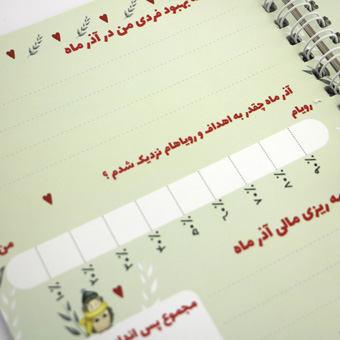 بهبود فردی من در آذر ماه
آذر ماه چقدر به اهداف و رویاهام نزدیک شدم ؟
رویام
۱۰٪ ۲۰٪ ۳۰٪ ۴۰٪ ۵۰٪ ۶۰٪ ۷۰٪ ۸۰٪ ۹۰٪
ریزی مالی آذر ماه
من
مجموع پس انداز